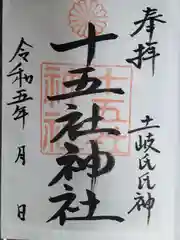 奉拝
土岐氏氏神
十五社神社
令和五年 月 日